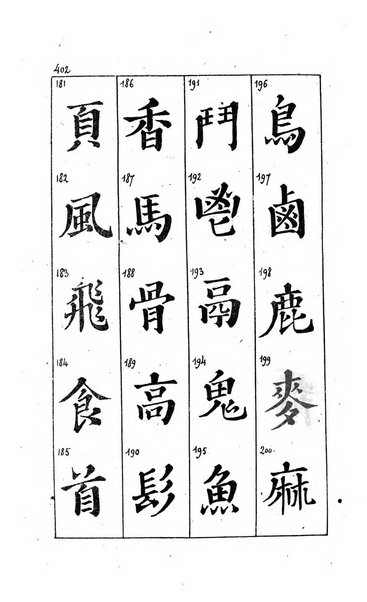 402
181 頁
182 風
183 飛
184 食
185 首
186 香
187 馬
188 骨
189 高
190 髟
191 鬥
192 鬯
193 鬲
194 鬼
195 魚
196 鳥
197 鹵
198 鹿
199 麥
200 麻